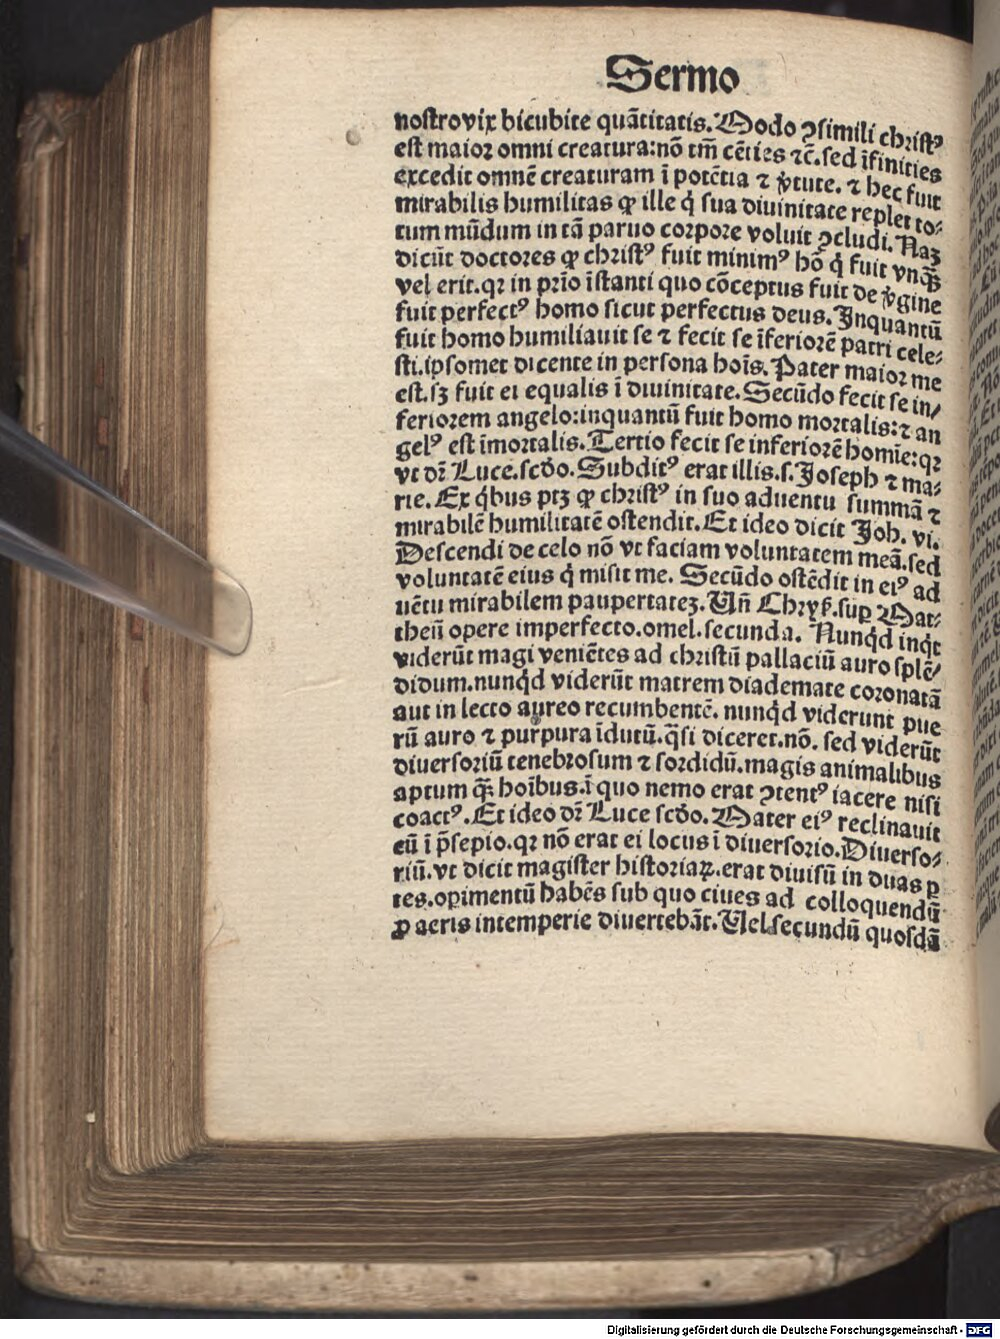 Sermo
nostro vix bicubite quãtitatis. Modo ꝯsimili christꝰ
est maior omni creatura: nõ tm̃ cẽties ⁊c̃. sed ĩfinities
excedit omnẽ creaturam ĩ potẽtia ⁊ v̓tute. ⁊ hec fuit
mirabilis humilitas ꝙ ille q̇ sua diuinitate replet to⸗
tum mũdum in tã paruo corpore voluit ꝯcludi. Naꝫ
dicũt doctores ꝙ christꝰ fuit minimꝰ hõ q̇ fuit vnꝗ̃
vel erit. qꝛ in prĩo ĩstanti quo cõceptus fuit de v̓gine
fuit perfectꝰ homo sicut perfectus deus. Inquantũ
fuit homo humiliauit se ⁊ fecit se ĩferiorẽ patri cele⸗
sti. ipsomet dicente in persona hoĩs. Pater maior me
est. sꝫ fuit ei equalis ĩ diuinitate. Secũdo fecit se in/
feriorem angelo: inquantũ fuit homo mortalis: ⁊ an
gelꝰ est ĩmortalis. Tertio fecit se inferiorẽ homĩe: qꝛ
vt dr̃ Luce. scďo. Subditꝰ erat illis. s. Joseph ⁊ ma⸗
rie. Ex q̇bus ptꝫ ꝙ christꝰ in suo aduentu summã ⁊
mirabilẽ humilitatẽ ostendit. Et ideo dicit Joh. vi.
Descendi de celo nõ vt faciam voluntatem meã. sed
voluntatẽ eius q̇ misit me. Secũdo ostẽdit in eiꝰ ad
uẽtu mirabilem paupertateꝫ. Uñ Chryẜ. suꝑ Mat⸗
theũ opere imperfecto. omel. secunda. Nunq̇d inq̇t
viderũt magi veniẽtes ad christũ pallaciũ auro splẽ/
didum. nunq̇d viderũt matrem diademate coronatã
aut in lecto aureo recumbentẽ. nunq̇d viderunt pue
rũ auro ⁊ purpura ĩdutũ. q̃si diceret. nõ. sed viderũt
diuersoriũ tenebrosum ⁊ sordidũ. magis animalibus
aptum ꝗ̃ hoĩbus. ĩ quo nemo erat ꝯtentꝰ iacere nisi
coactꝰ. Et ideo dr̃ Luce scďo. Mater eiꝰ reclinauit
eũ ĩ p̃sepio. qꝛ nõ erat ei locus ĩ diuersorio. Diuerso⸗
riũ. vt dicit magister historiaꝝ. erat diuisũ in duas ꝑ
tes. opimentũ habẽs sub quo ciues ad colloquendũ
ꝓ aeris intemperie diuertebãt. Uel secundũ quosdã
Digitalisierung gefördert durch die Deutsche Forschungsgemeinschaft - DFG